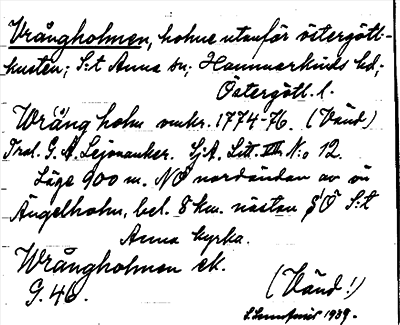 Vrångholmen, holme utanför östergöt-
kusten; S:t Anna sn; Hammarkinds hd;
Östergötl. l.
Wrång holm omkr. 1774-76. (Vänd)
Trol. G. A. Lejonanker. SjA. Litt. VIII N:o 12.
Läge 900 m. NÖ nordändan av ön
Ängelholm, bel. 8 km. nästan Ö S:t
Anna kyrka.
Wrångholmen ek.
G. 46.
(Vänd!)
1939.